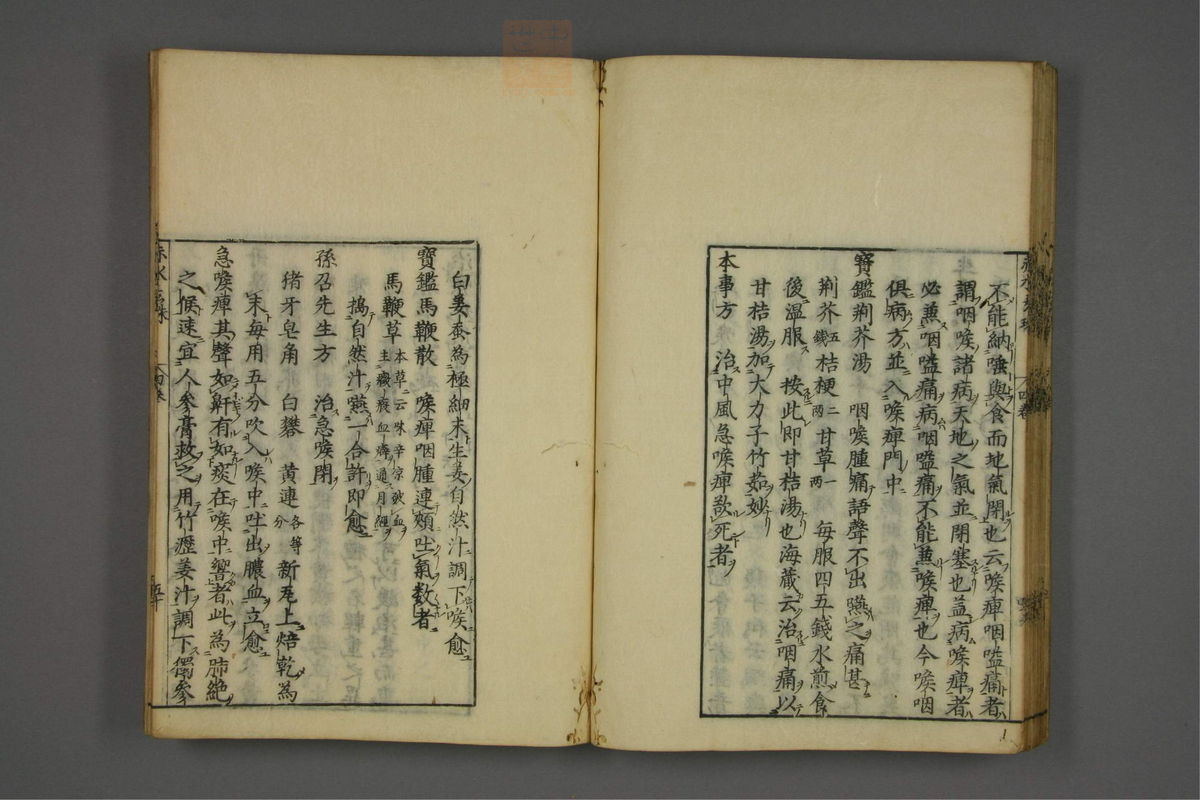 不能納唾與食而地氣閉也云喉痺咽嗌痛者
謂咽喉諸病天地之氣並閉塞也盖病喉痺者
必兼咽嗌痛病咽嗌痛不能兼喉痺也今喉咽
俱病方並入喉痺門中
寶鑑荊芥湯 咽喉腫痛語聲不出嚥之痛甚
荊芥五錢桔梗二兩甘草一兩 每服四五錢水煎食
後溫服 按此即甘桔湯也海蔵云治咽痛以
甘桔湯加大力子竹茹妙
本事方 治中風急喉痺欲死者
白姜蚕為極細末生姜自然汁調下喉愈
寶鑑馬鞭散 喉痺咽腫連頬吐氣数者
馬鞭草本草云味辛凉破血
主癥瘕血瘕通月經
搗自然汁嚥一合許即愈
孫召先生方 治急喉閉
猪牙皂角 白礬 黄連各等分 新瓦上焙乾為
末毎用五分吹入喉中吐出膿血立愈
急喉痺其聲如鼾有如痰在喉中響者此為肺絶
之候速宜人参膏救之用竹瀝姜汁調下獨参